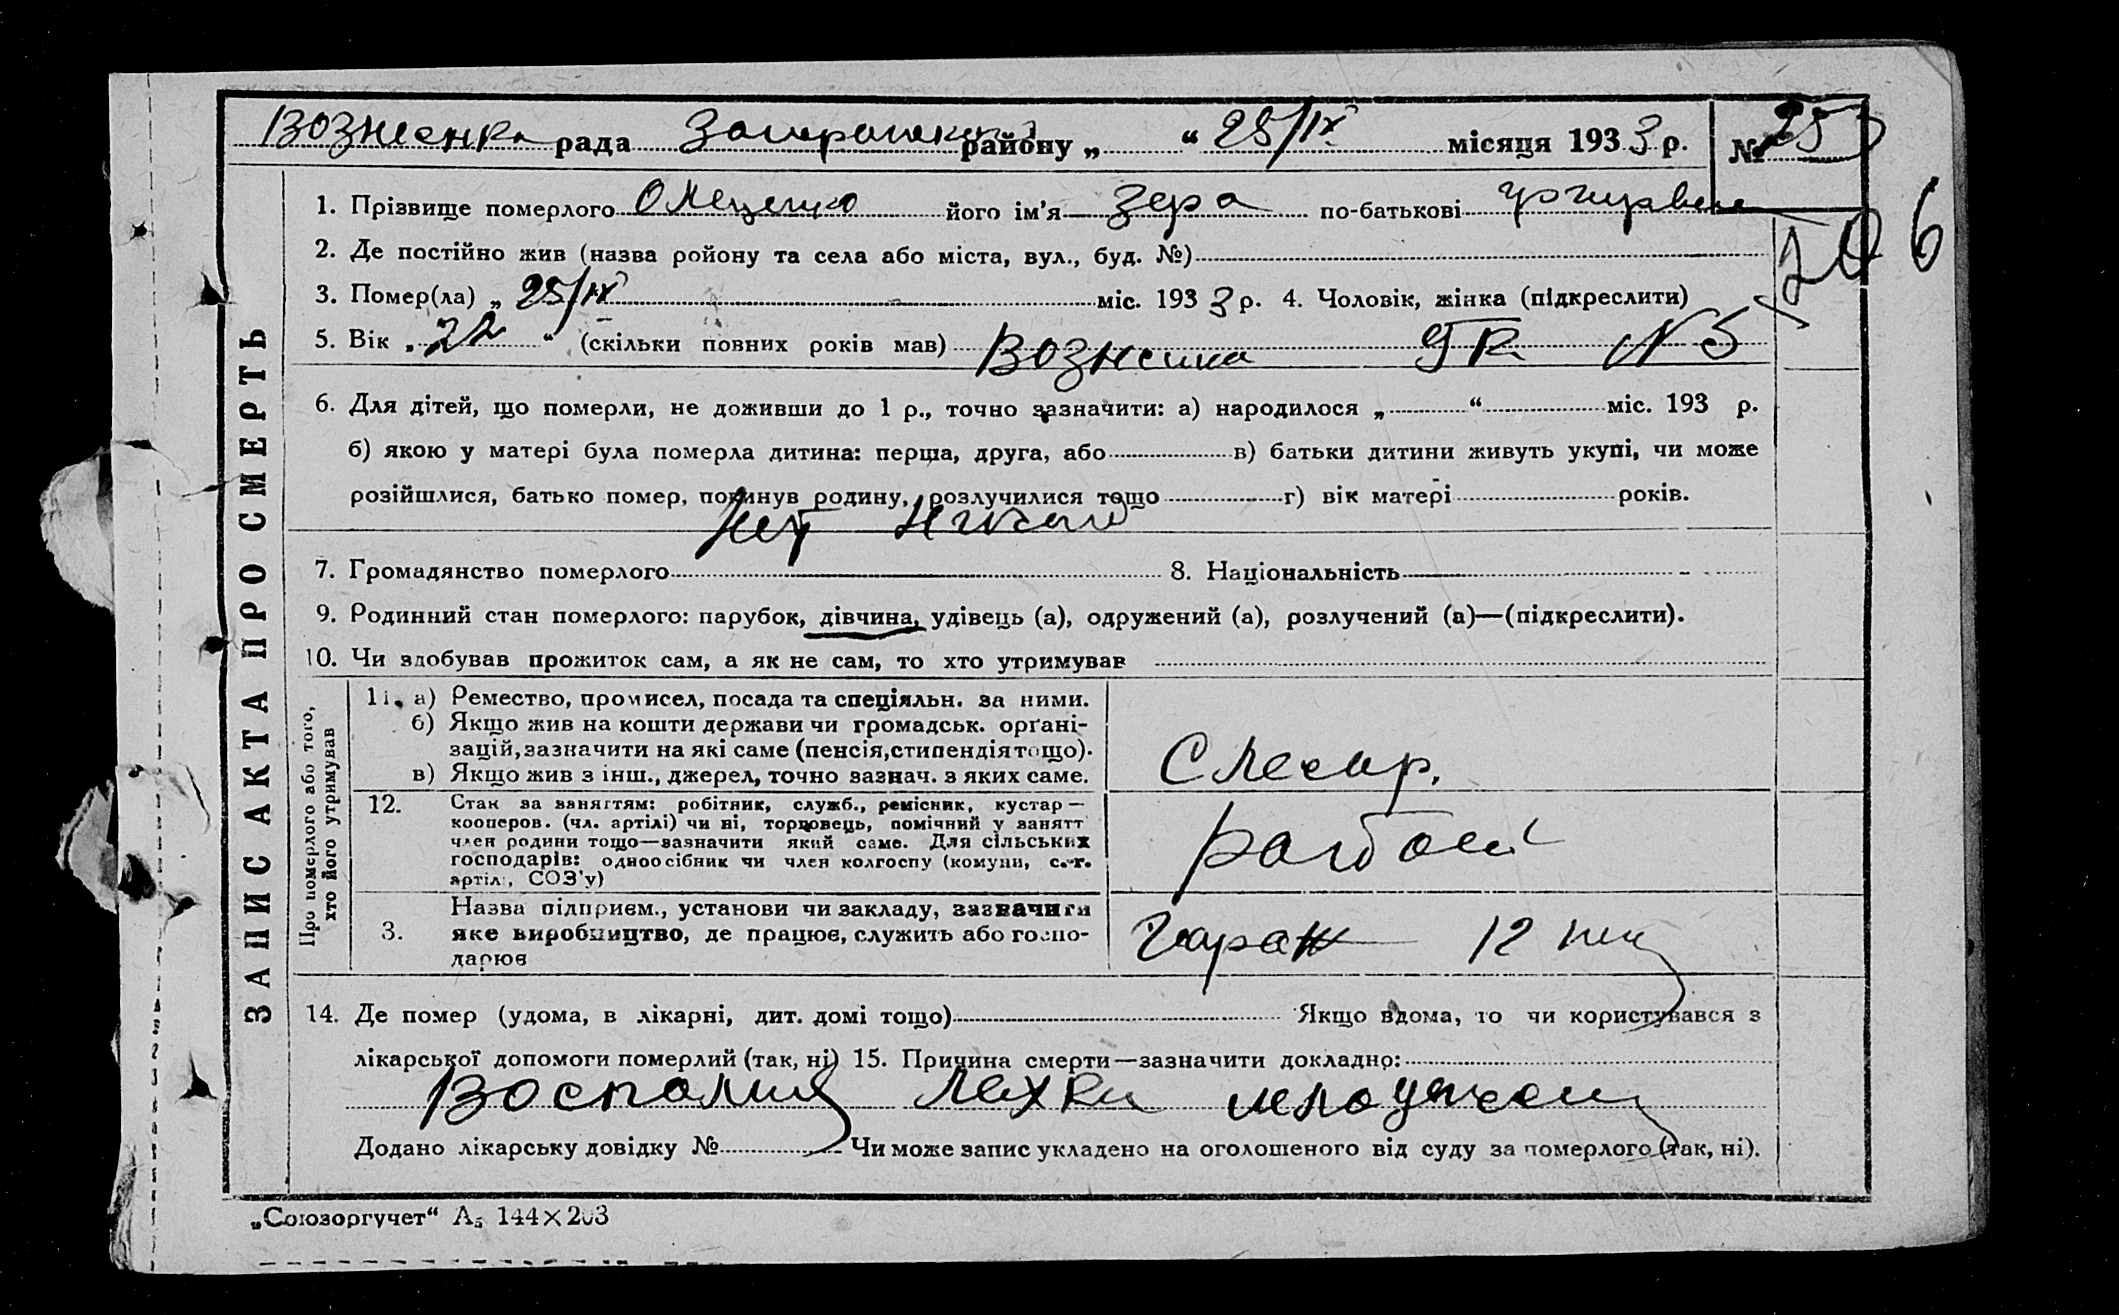 Вознесенка рада району „ “ 25/IX місяця 1933 р. № 253
206
ЗАПИС АКТА ПРО СМЕРТЬ
1. Прізвище померлого його ім'я Зера по-батькові
2. Де постійно жив (назва ройону та села або міста, вул., буд. №)
3. Помер(ла) „ 25/IX міс. 1933 р. 4. Чоловік, жінка (підкреслити)
5. Вік „ 22 “ (скільки повних років мав) N 5
6. Для дітей, що померли, не доживши до 1 р., точно зазначити: а) народилося „ “ міс. 193 р.
б) якою у матері була померла дитина: перша, друга, або в) батьки дитини живуть укупі, чи може
розійшлися, батько помер, покинув родину, розлучилися тощо г) вік матері років.
Нет
7. Громадянство померлого 8. Національність
9. Родинний стан померлого: парубок, дівчина, удівець (а), одружений (а), розлучений (а)—(підкреслити).
10. Чи здобував прожиток сам, а як не сам, то хто утримував
Про померлого або того, хто його утримував
11. а) Ремество, промисел, посада та спеціяльн. за ними.
б) Якщо жив на кошти держави чи громадськ. орґані-
зацій, зазначити на які саме (пенсія, стипендія тощо).
в) Якщо жив з інш., джерел, точно зазнач. з яких саме.
Слесар.
12. Стан за заняттям: робітник, служб., ремісник, кустар —
кооперов. (чл. артілі) чи ні, торговець, помічний у занятт
член родини тощо—зазначити який саме. Для сільських
господарів: одноосібник чи член колгоспу (комуни, с.-г.
артілі, СОЗ'у)
3. Назва підприєм., установи чи закладу, зазначити
яке виробництво, де працює, служить або госпо-
дарює
Гараж 12
14. Де помер (удома, в лікарні, дит. домі тощо) Якщо вдома, то чи користувався з
лікарської допомоги померлий (так, ні) 15. Причина смерти—зазначити докладно:
Додано лікарську довідку № Чи може запис укладено на оголошеного від суду за померлого (так, ні).
„Союзоргучет“ А5 144×203